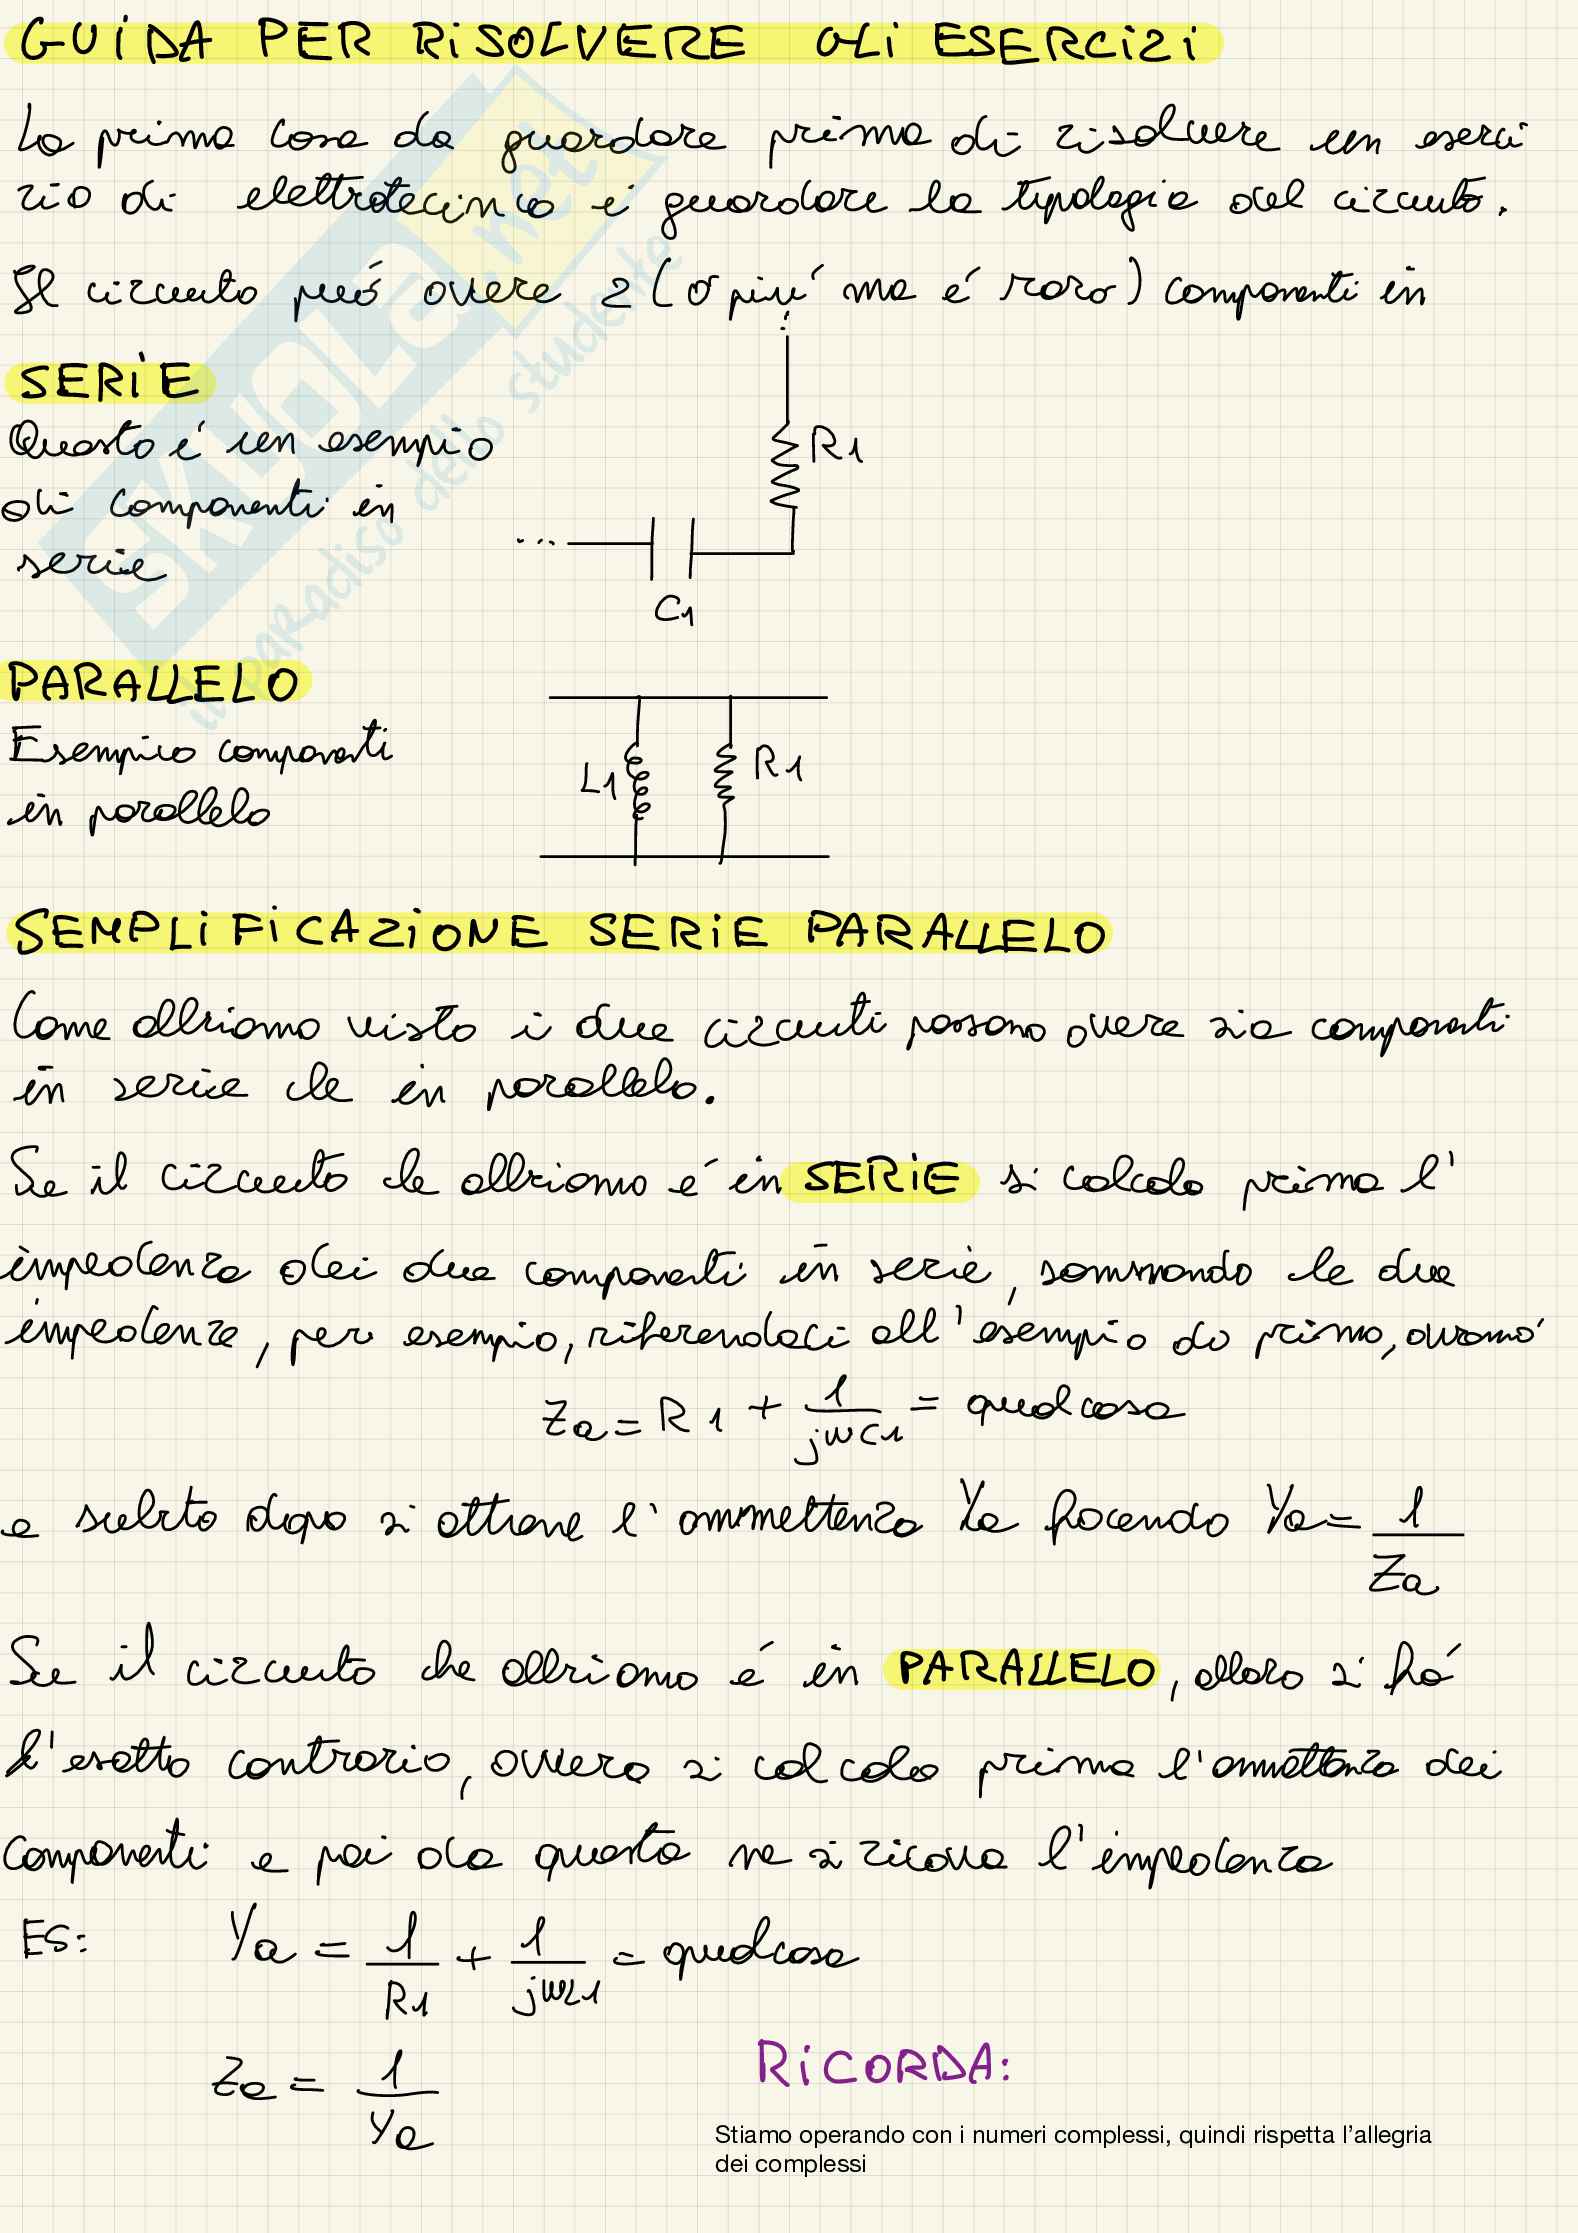 GUIDA PER RISOLVERE GLI ESERCIZI
La prima cosa da guardare prima di risolvere un eserci
zio di elettrotecinca è guardare la tipologia del circuito.
Il circuito può avere 2 (o più ma è raro) componenti in
SERIE
Questo è un esempio
di componenti in
serie
R1
C1
PARALLELO
Esempio componenti
in parallelo
L1
R1
SEMPLIFICAZIONE SERIE PARALLELO
Come abbiamo visto i due circuiti possono avere sia componenti
in serie che in parallelo.
Se il circuito che abbiamo é in SERIE si calcola prima l'
impedenza dei due componenti in serie, sommando le due
impedenze, per esempio, riferendoci all'esempio di prima, avremo
Za = R1 + 1/jωC1 = qualcosa
e subito dopo si ottiene l'ammettenza Ya facendo Ya = 1/Za
Se il circuito che abbiamo é in PARALLELO, allora si fá
l'esatto contrario, ovvero si calcola prima l'ammettenza dei
componenti e poi da questa ne si ricava l'impedenza
ES: Ya = 1/R1 + 1/jωL1 = qualcosa
Za = 1/Ya
RICORDA:
Stiamo operando con i numeri complessi, quindi rispetta l'allegria
dei complessi
SKUOLA.net
il paradiso dello studente